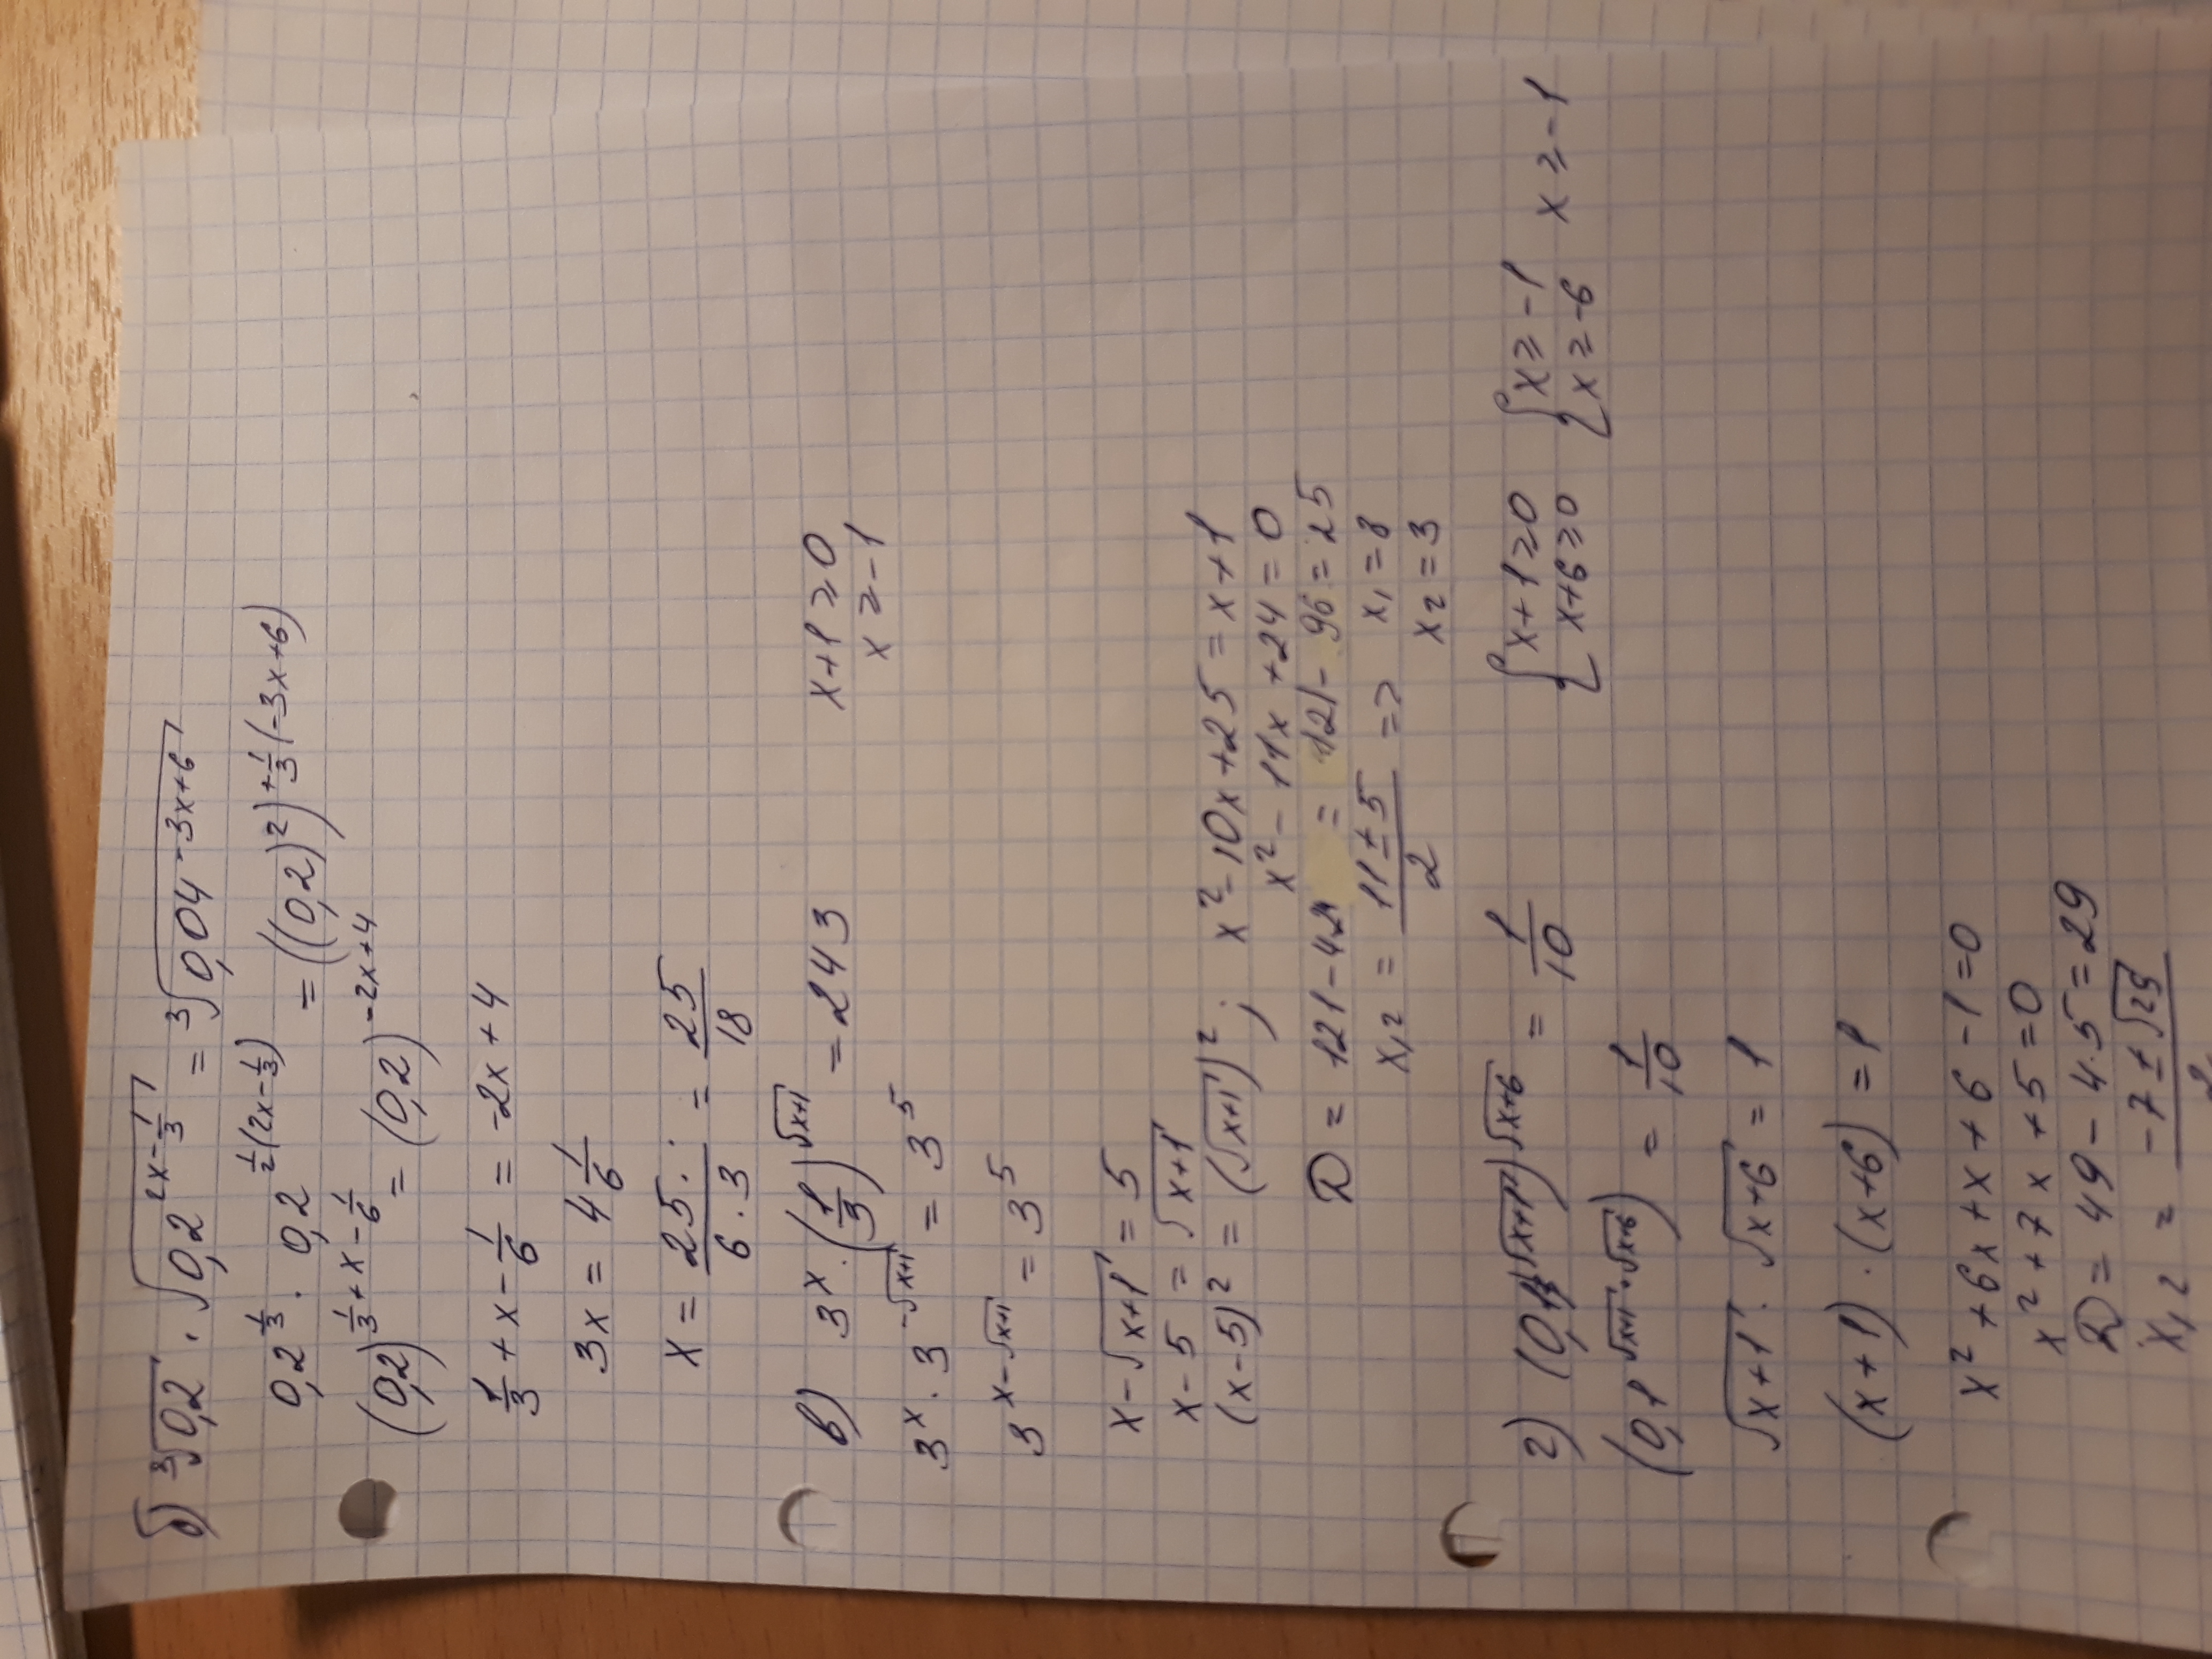 б) ∛0,2 · √0,2^(2x-1/3) = ∛0,04^(-3x+6)
0,2^(1/3) · 0,2^(1/2(2x-1/3)) = ((0,2)²)^(+1/3(-3x+6))
(0,2)^(1/3+x-1/6) = (0,2)^(-2x+4)
1/3 + x - 1/6 = -2x + 4
3x = 4 1/6
x = 25·/6·3 = 25/18
в) 3^x · (1/3)^√(x+1) = 243 x+1≥0
x ≥ -1
3^x · 3^(-√(x+1)) = 3^5
3^(x-√(x+1)) = 3^5
x - √(x+1) = 5
x - 5 = √(x+1)
(x-5)² = (√(x+1))²; x² - 10x + 25 = x + 1
x² - 11x + 24 = 0
D = 121 - 4·24 = 121 - 96 = 25
x1,2 = (11 ± 5)/2 => x1 = 8
x2 = 3
г) (0,1^√(x+1))^√(x+6) = 1/10 {x+1≥0 {x≥-1 x≥-1
{x+6≥0 {x≥-6
(0,1^(√(x+1)·√(x+6))) = 1/10
√(x+1) · √(x+6) = 1
(x+1) · (x+6) = 1
x² + 6x + x + 6 - 1 = 0
x² + 7x + 5 = 0
D = 49 - 4·5 = 29
x1,2 = (-7 ± √29)/2